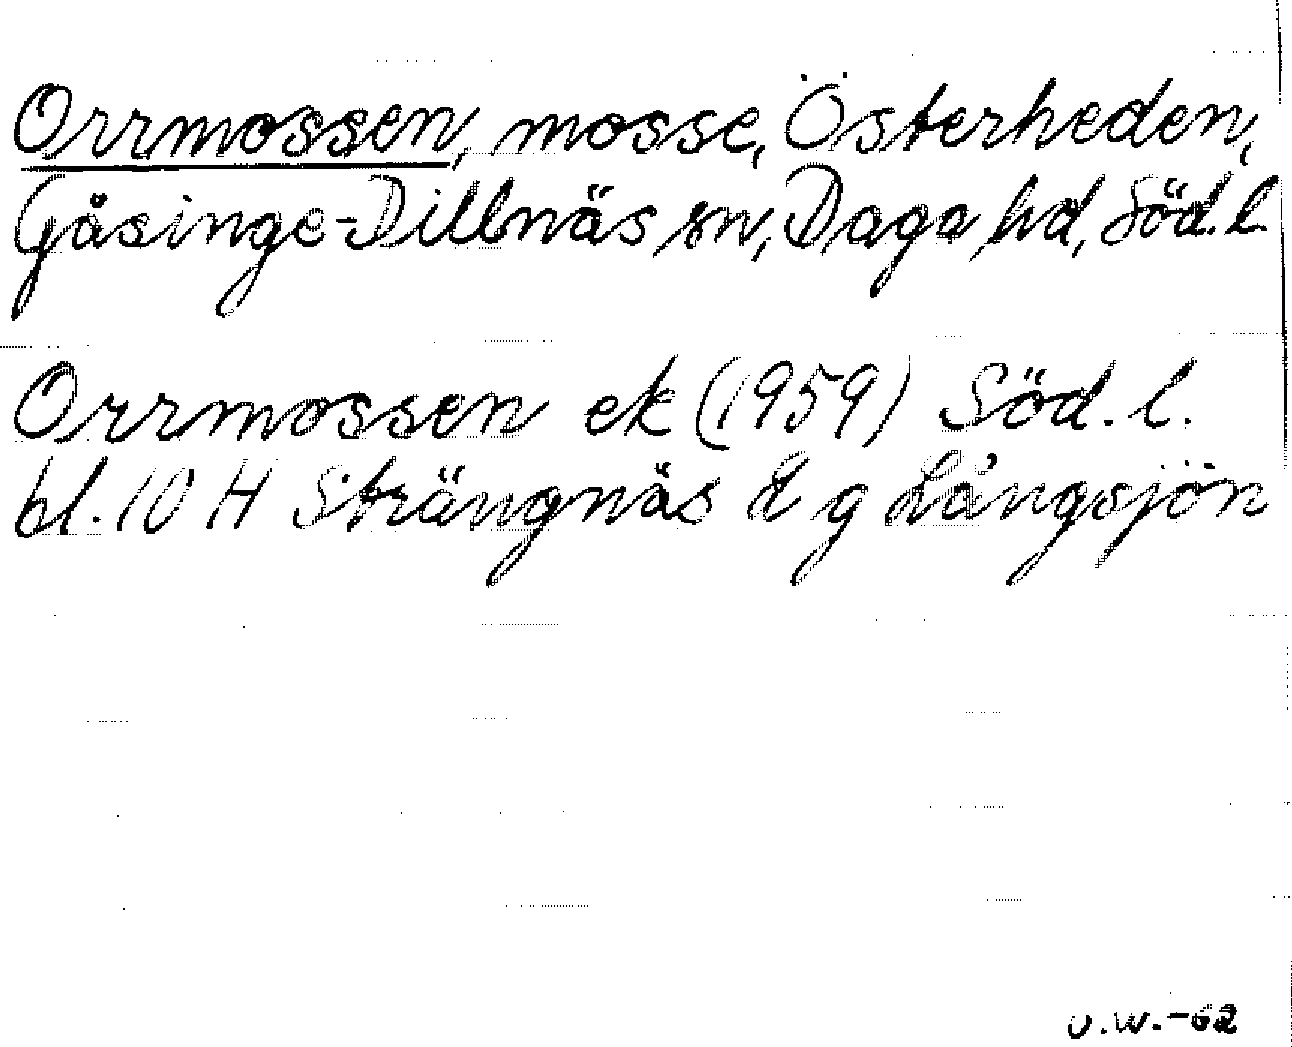 Orrmossen, mosse, Österheden,
Gåsinge-Dillnäs sn, Daga hd, Söd. l.
Orrmossen ek (1959) Söd. l.
bl. 10 H Strängnäs d g Långsjön
U.W.-62